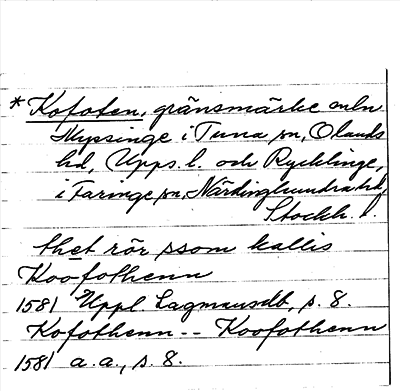 * Kofoten, gränsmärke mln
Myssinge i Tuna sn, Olands
hd, Upps. l. och Rycklinge,
i Faringe sn, Närdinghundra hd,
Stockh. l.
thet rör ssom kallis
Koofothenn
1581 Uppl. Lagmansdb, s. 8.
Kofothenn -- Koofothenn
1581 a. a., s. 8.